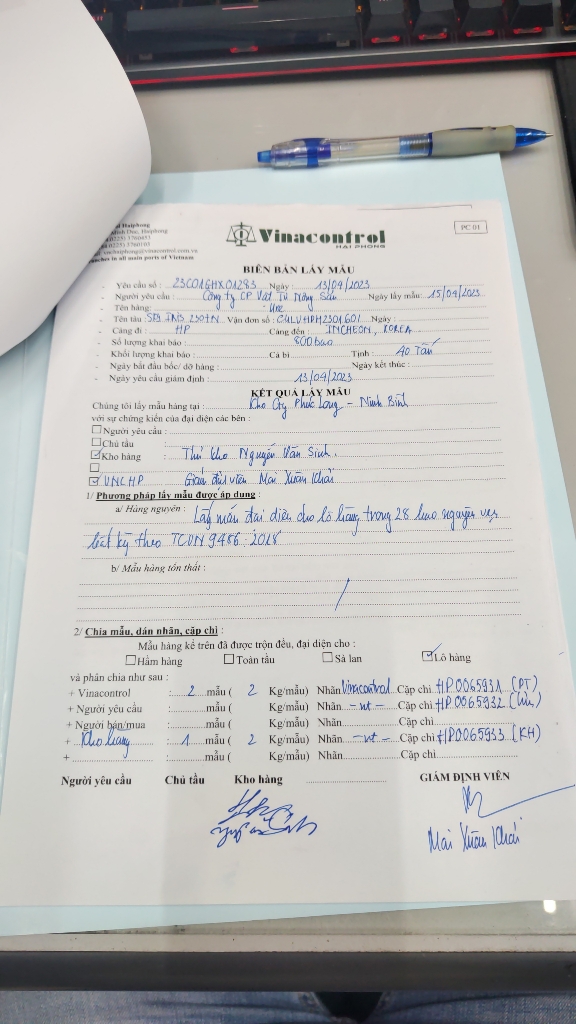 Haiphong
Haiphong
(0225) 3760453
(0225) 3760103
vnchaiphong@vinacontrol.com.vn
Branches in all main ports of Vietnam
Vinacontrol
HAI PHONG
PC 01
BIÊN BẢN LẤY MẪU
- Yêu cầu số : 23C01GHX01283 Ngày : 13/04/2023
- Người yêu cầu : Công ty CP Vật Tư Nông Sản Ngày lấy mẫu: 15/04/2023
- Tên hàng : Ure
- Tên tàu : 2307N Vận đơn số : CULVHPH2301601 Ngày :
- Cảng đi : HP Cảng đến : INCHEON, KOREA
- Số lượng khai báo : 800 bao
- Khối lượng khai báo : Cả bì Tịnh : 40 Tấn
- Ngày bắt đầu bốc/ dỡ hàng : Ngày kết thúc :
- Ngày yêu cầu giám định : 13/04/2023
KẾT QUẢ LẤY MẪU
Chúng tôi lấy mẫu hàng tại : Kho Cty Phúc Long - Ninh Bình
với sự chứng kiến của đại diện các bên :
Người yêu cầu :
Chủ tàu :
Kho hàng : Thủ kho Nguyễn Văn Sinh.
VNCHP Giám định viên Mai Xuân Khải
1/ Phương pháp lấy mẫu được áp dụng :
a/ Hàng nguyên : Lấy mẫu đại diện cho lô hàng trong 28 bao nguyên vẹn
bất kỳ theo TCVN 9486 : 2018
b/ Mẫu hàng tổn thất :
2/ Chia mẫu, dán nhãn, cặp chì :
Mẫu hàng kể trên đã được trộn đều, đại diện cho :
Hầm hàng Toàn tàu Sà lan Lô hàng
và phân chia như sau :
+ Vinacontrol : 2 mẫu ( 2 Kg/mẫu) Nhãn Vinacontrol Cặp chì HP0065931 (PT)
+ Người yêu cầu : mẫu ( Kg/mẫu) Nhãn -nt- Cặp chì HP0065932 (Lưu)
+ Người bán/mua : mẫu ( Kg/mẫu) Nhãn Cặp chì
+ Kho hàng : 1 mẫu ( 2 Kg/mẫu) Nhãn -nt- Cặp chì HP0065933 (KH)
+ : mẫu ( Kg/mẫu) Nhãn Cặp chì
Người yêu cầu Chủ tàu Kho hàng GIÁM ĐỊNH VIÊN
Mai Xuân Khải